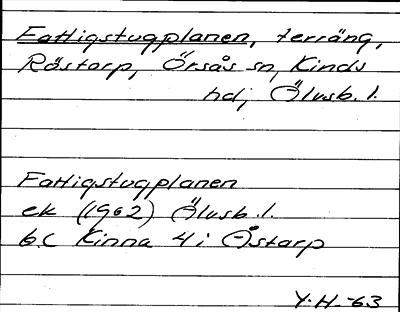 Fattigstugplanen, terräng,
Röstorp, Örsås sn, Kinds
hd, Älvsb. l.
Fattigstugplanen
ek (1962) Älvsb. l.
6C Kinna 4i Östarp
Y.H.-63